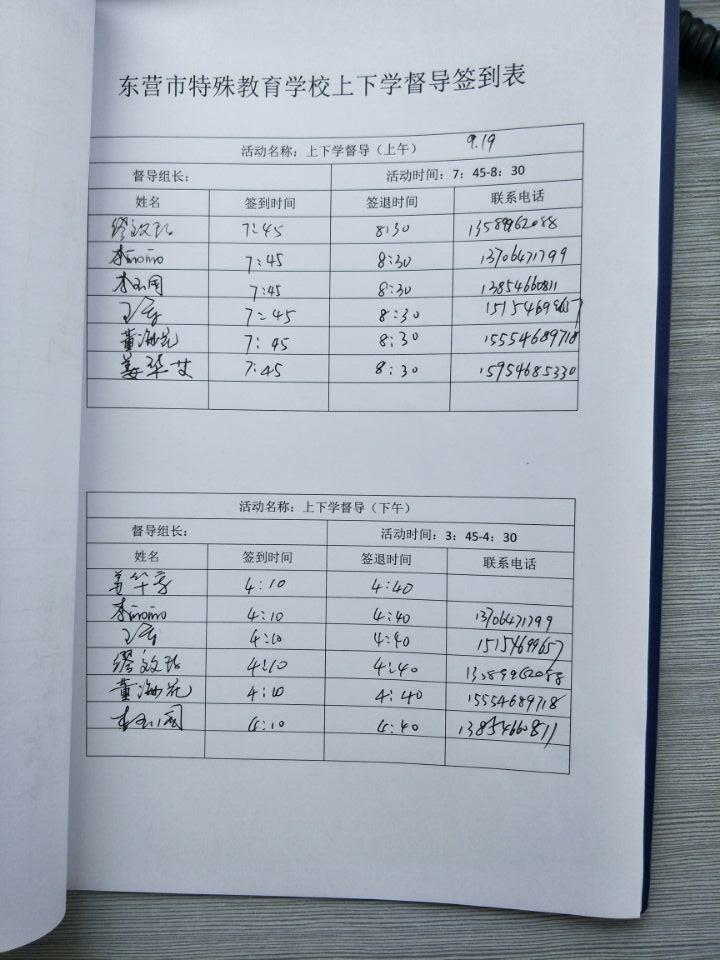 东营市特殊教育学校上下学督导签到表
活动名称：上下学督导（上午） 9.19
督导组长： 活动时间：7：45-8：30
姓名 签到时间 签退时间 联系电话
缪文 7:45 8:30
李丽丽 7:45 8:30 13706471799
李玉国 7:45 8:30 13854660811
王 7:45 8:30 15154699657
董海 7:45 8:30 15554689718
姜华 7:45 8:30 15954685330
活动名称：上下学督导（下午）
督导组长： 活动时间：3：45-4：30
姓名 签到时间 签退时间 联系电话
姜华 4:10 4:40
李丽丽 4:10 4:40 13706471799
王 4:10 4:40 15154699657
缪文 4:10 4:40
董海 4:10 4:40 15554689718
李玉国 4:10 4:40 13854660811